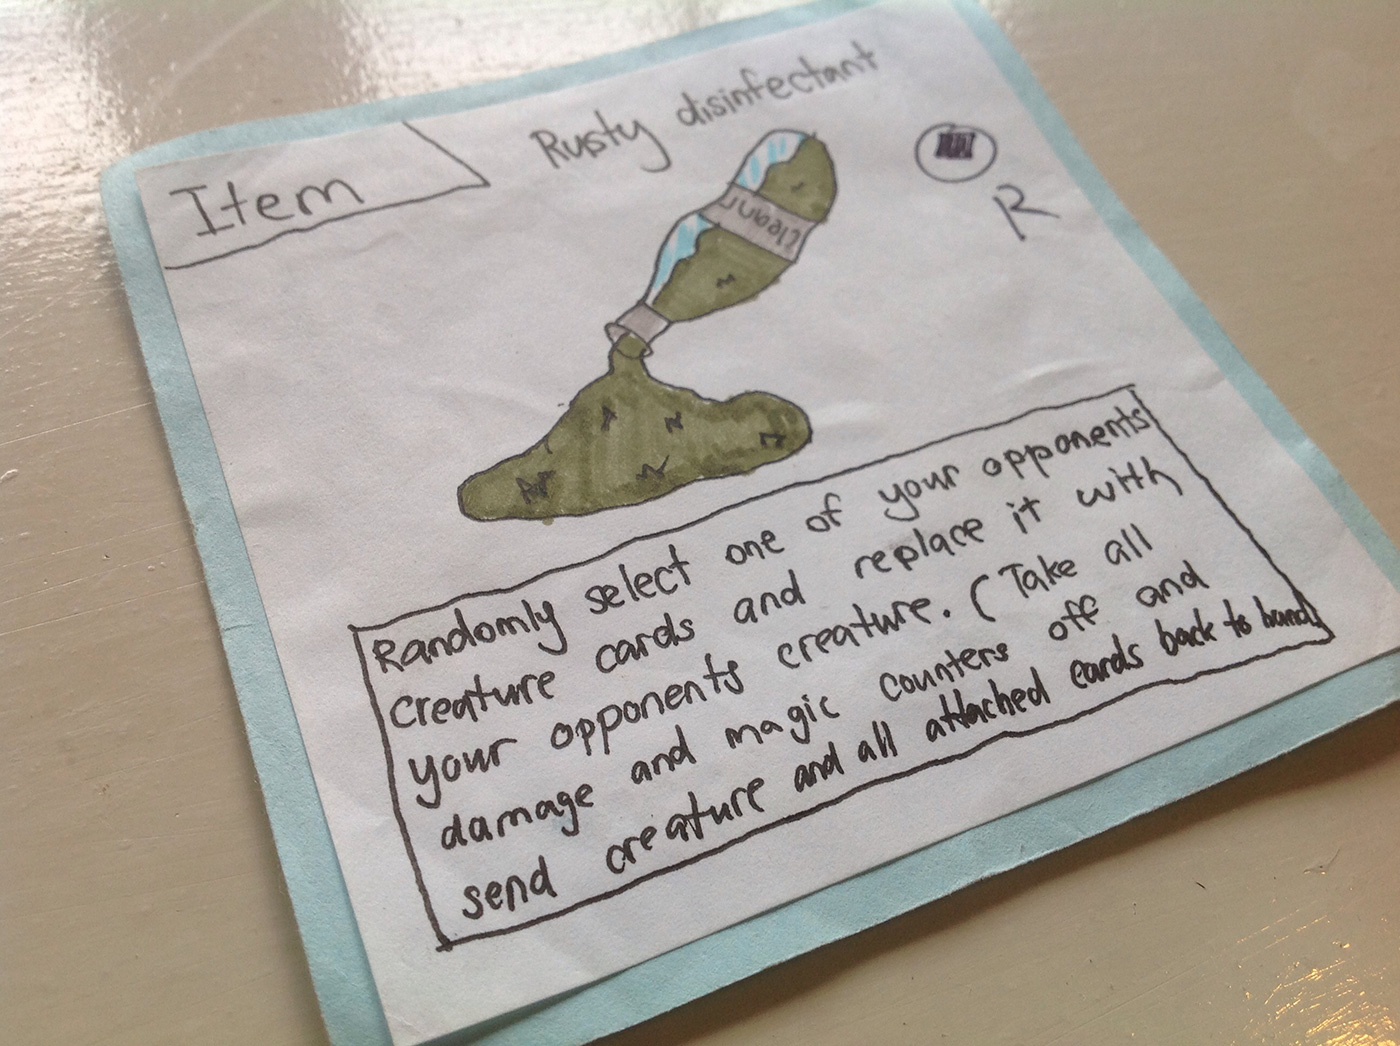 Item
Rusty disinfectant
R
Cleanr
Randomly select one of your opponents
creature cards and replace it with
your opponents creature. (Take all
damage and magic counters off and
send creature and all attached cards back to hand)